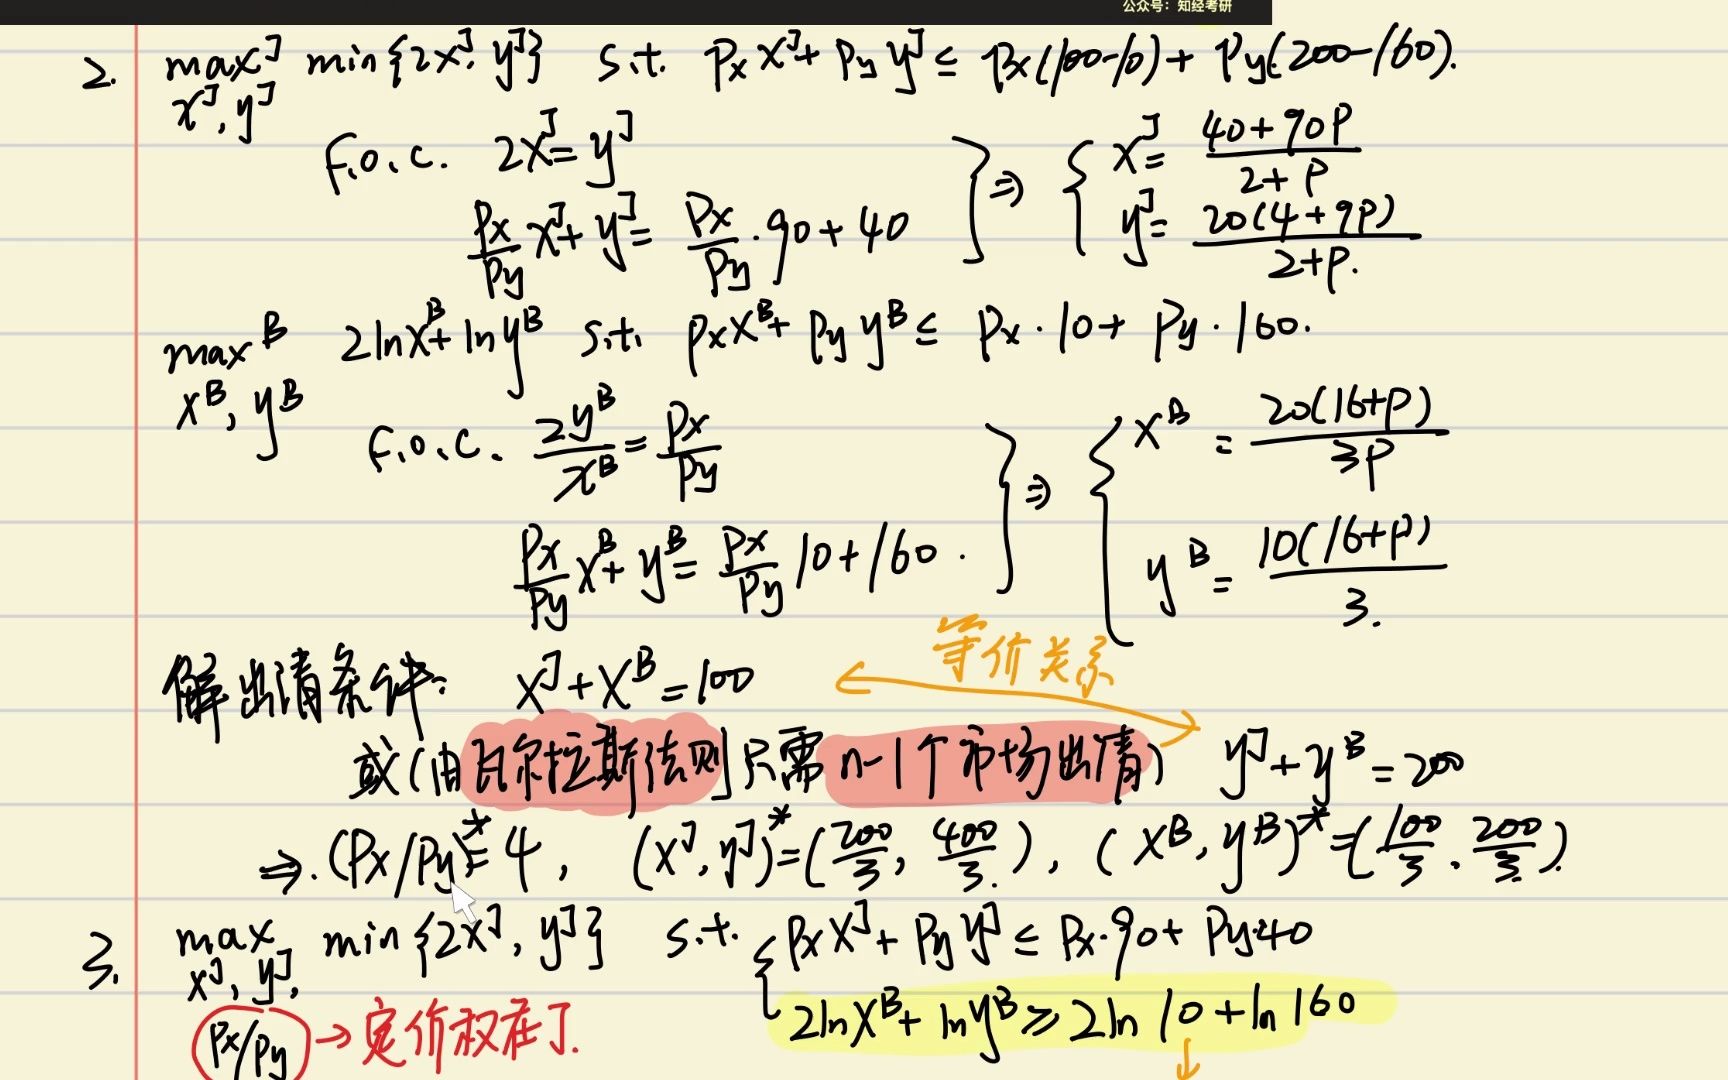 公众号：知经考研
2. max^J min{2x^J, y^J} s.t. Px x^J + Py y^J ≤ Px(100-10) + Py(200-160).
x^J, y^J
F.O.C. 2x^J = y^J
Px/Py x^J + y^J = Px/Py · 90 + 40
} ⇒ { x^J = (40+90P)/(2+P)
y^J = 20(4+9P)/(2+P).
max^B 2lnx^B + lny^B s.t. Px x^B + Py y^B ≤ Px · 10 + Py · 160.
x^B, y^B
F.O.C. 2y^B/x^B = Px/Py
Px/Py x^B + y^B = Px/Py 10 + 160.
} ⇒ { x^B = 20(16+P)/3P
y^B = 10(16+P)/3.
等价关系
解出清条件: x^J + x^B = 100
或(由瓦尔拉斯法则只需n-1个市场出清) y^J + y^B = 200
⇒. (Px/Py)^* = 4, (x^J, y^J)^* = (200/3, 400/3.), (x^B, y^B)^* = (100/3, 200/3).
3. max min{2x^J, y^J} s.t. { Px x^J + Py y^J ≤ Px·90 + Py·40
x^J, y^J,
2lnx^B + lny^B ≥ 2ln 10 + ln 160
Px/Py → 定价权在J.